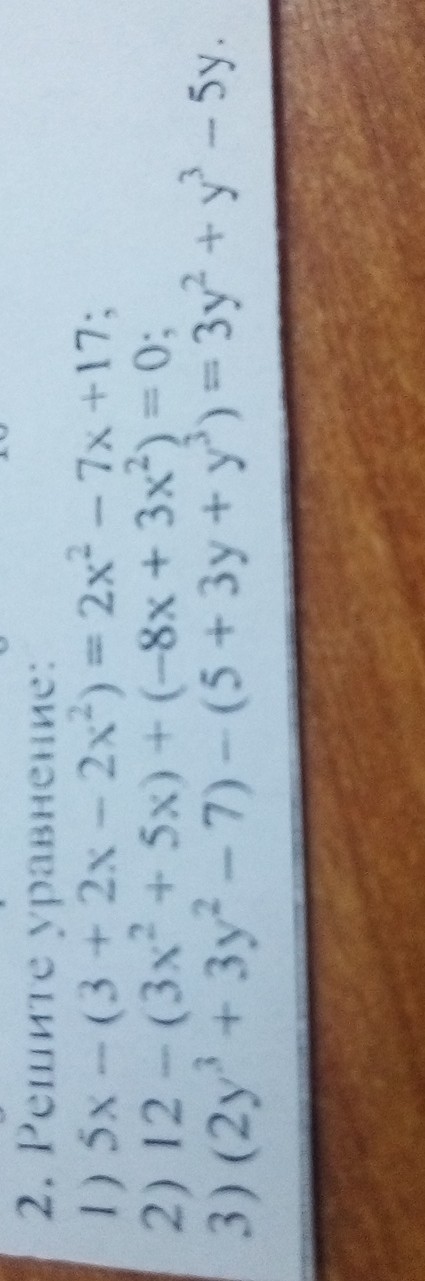 2. Решите уравнение:
1) 5x − (3 + 2x − 2x²) = 2x² − 7x + 17;
2) 12 − (3x² + 5x) + (−8x + 3x²) = 0;
3) (2y³ + 3y² − 7) − (5 + 3y + y³) = 3y² + y³ − 5y.